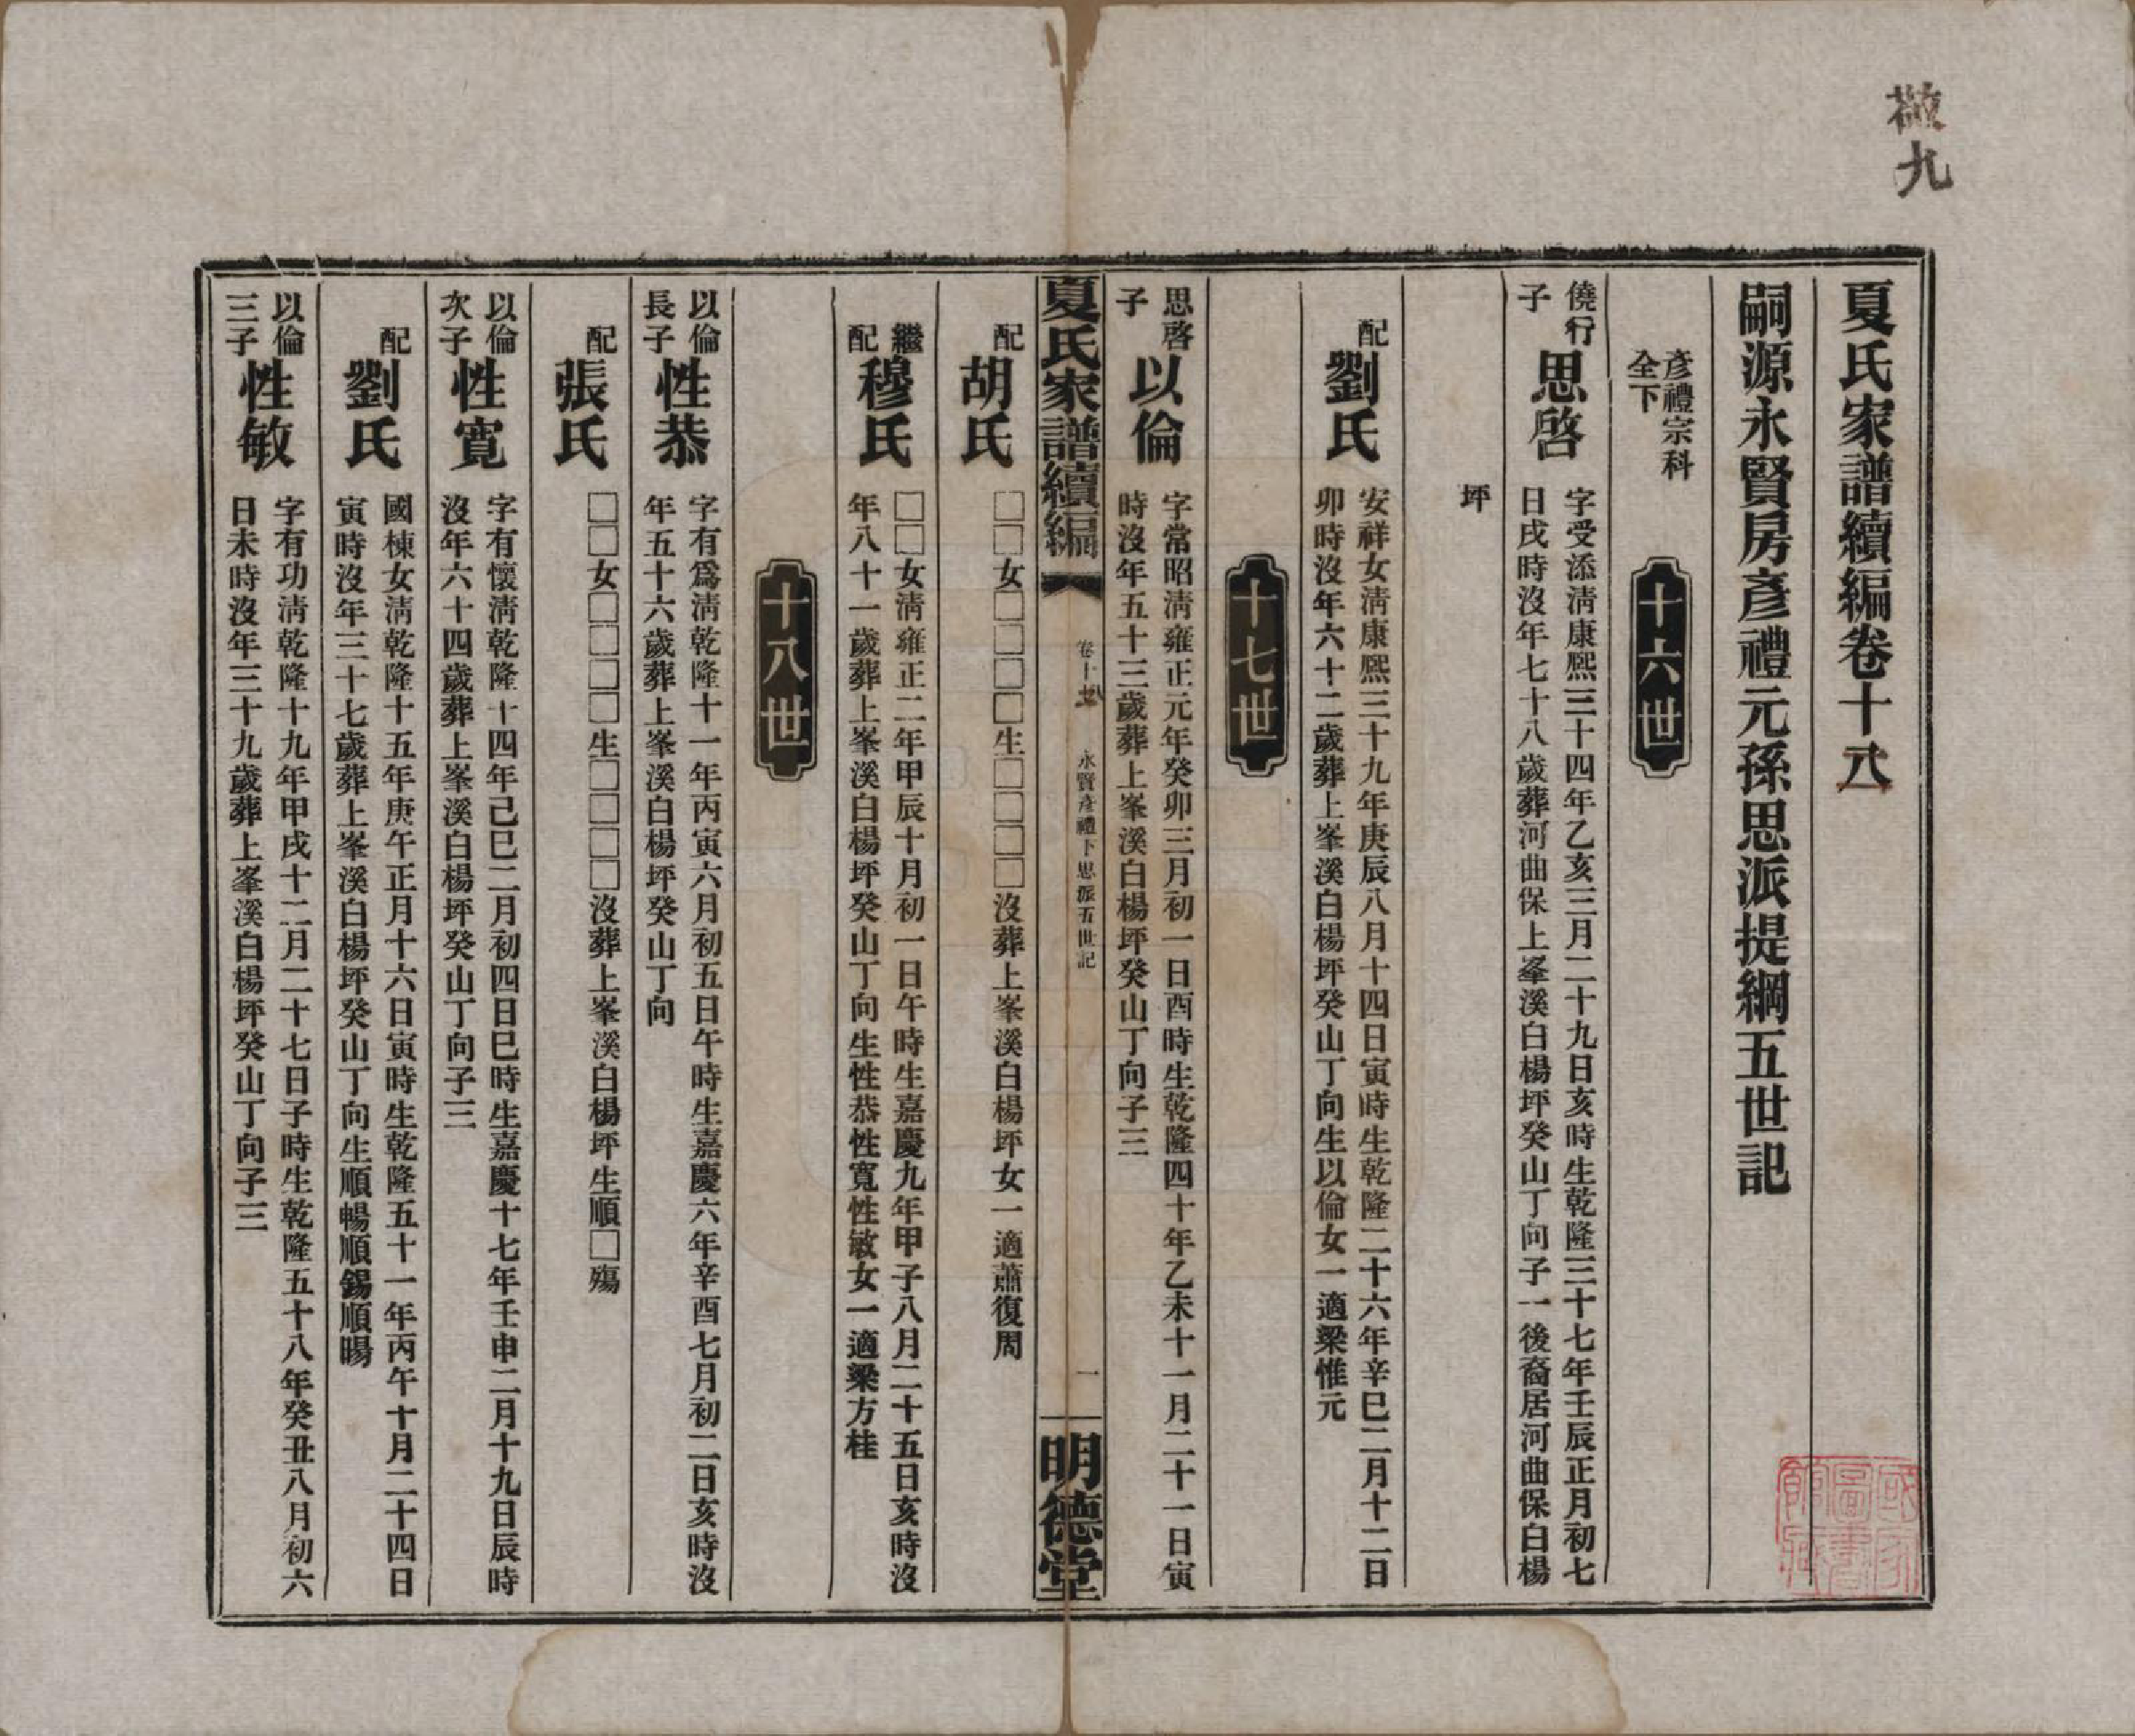 敬九
夏氏家譜續編卷十八
嗣源永賢房彥禮元孫思派提綱五世記
彥禮宗科
仝下
十六世
僥行
子
思啓
字受添清康熙三十四年乙亥三月二十九日亥時生乾隆三十七年壬辰正月初七
日戌時沒年七十八歲葬河曲保上峯溪白楊坪癸山丁向子一後裔居河曲保白楊
坪
配
劉氏
安祥女清康熙三十九年庚辰八月十四日寅時生乾隆二十六年辛巳二月十二日
卯時沒年六十二歲葬上峯溪白楊坪癸山丁向生以倫女一適梁惟元
十七世
思啓
子
以倫
字常昭清雍正元年癸卯三月初一日酉時生乾隆四十年乙未十一月二十一日寅
時沒年五十三歲葬上峯溪白楊坪癸山丁向子三
夏氏家譜續編
卷十八
永賢彥禮下思派五世記
一
明德堂
配
胡氏
□□女□□□□生□□□□沒葬上峯溪白楊坪女一適蕭復周
繼
配
穆氏
□□女清雍正二年甲辰十月初一日午時生嘉慶九年甲子八月二十五日亥時沒
年八十一歲葬上峯溪白楊坪癸山丁向生性恭性寬性敏女一適梁方桂
十八世
以倫
長子
性恭
字有爲清乾隆十一年丙寅六月初五日午時生嘉慶六年辛酉七月初二日亥時沒
年五十六歲葬上峯溪白楊坪癸山丁向
配
張氏
□□女□□□□生□□□□沒葬上峯溪白楊坪生順□殤
以倫
次子
性寬
字有懷清乾隆十四年己巳二月初四日巳時生嘉慶十七年壬申二月十九日辰時
沒年六十四歲葬上峯溪白楊坪癸山丁向子三
配
劉氏
國棟女清乾隆十五年庚午正月十六日寅時生乾隆五十一年丙午十月二十四日
寅時沒年三十七歲葬上峯溪白楊坪癸山丁向生順暢順錫順暘
以倫
三子
性敏
字有功清乾隆十九年甲戌十二月二十七日子時生乾隆五十八年癸丑八月初六
日未時沒年三十九歲葬上峯溪白楊坪癸山丁向子三